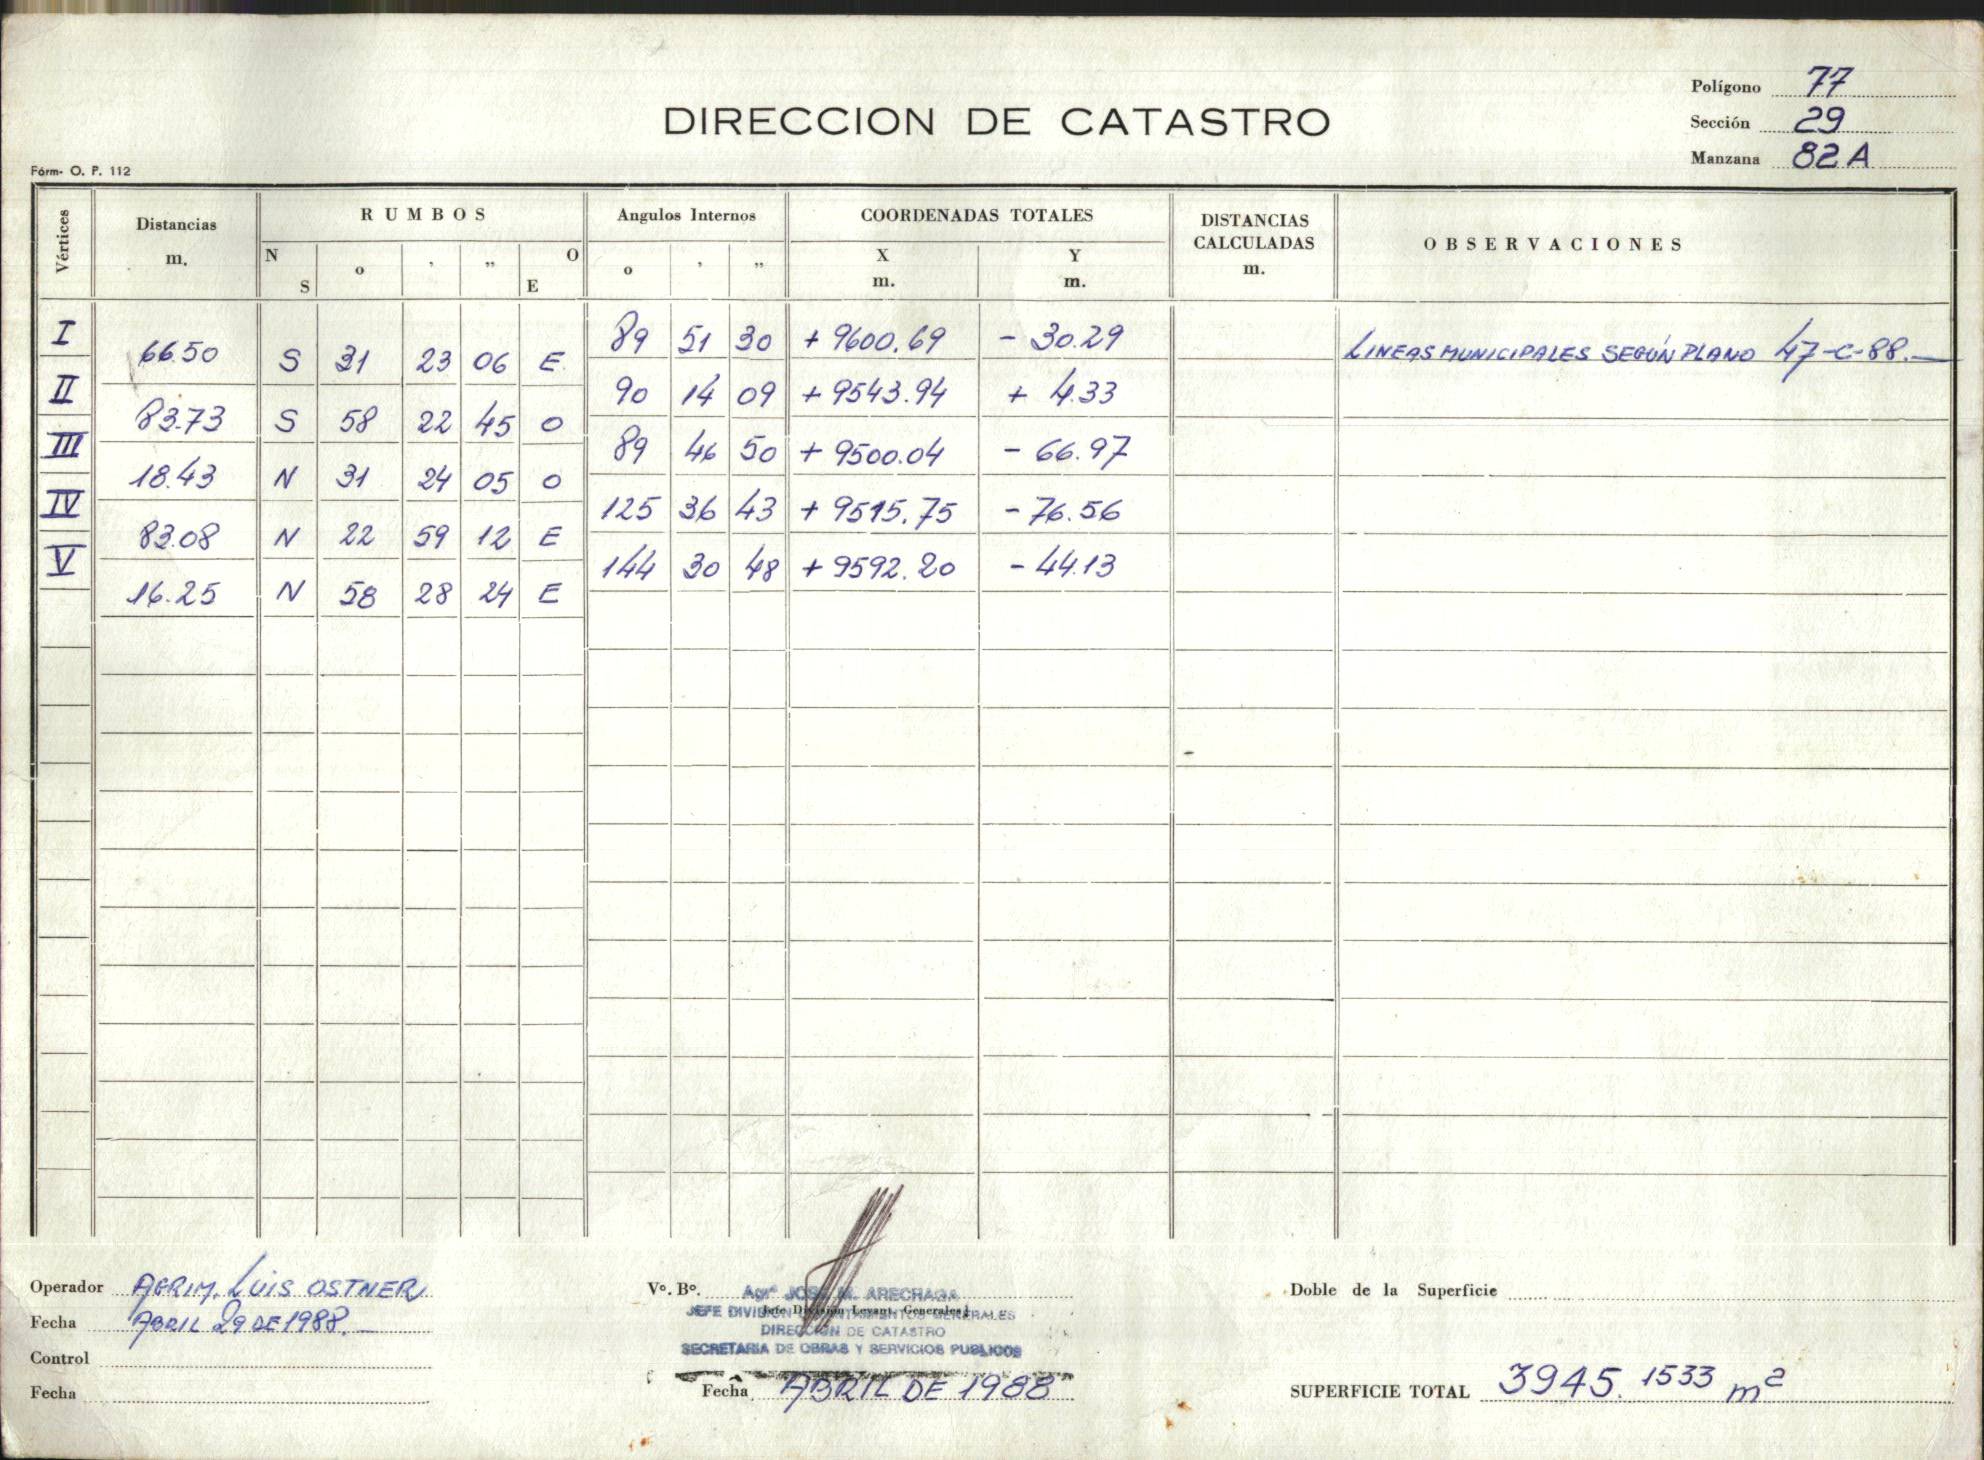 Polígono 77
DIRECCION DE CATASTRO
Sección 29
Manzana 82 A
Fórm- O. P. 112
Vértices Distancias m. RUMBOS N S o ' " O E Angulos Internos o ' " COORDENADAS TOTALES X m. Y m. DISTANCIAS CALCULADAS m. OBSERVACIONES
I 89 51 30 + 9600.69 - 30.29
66.50 S 31 23 06 E LINEAS MUNICIPALES SEGÚN PLANO 47-C-88.-
II 90 14 09 + 9543.94 + 4.33
83.73 S 58 22 45 O
III 89 46 50 + 9500.04 - 66.97
18.43 N 31 24 05 O
IV 125 36 43 + 9515.75 - 76.56
83.08 N 22 59 12 E
V 144 30 48 + 9592.20 - 44.13
16.25 N 58 28 24 E
Operador AGRIM. LUIS OSTNER
Fecha ABRIL 29 DE 1988.-
Control
Fecha
Vº. Bº. Agrº JOSE M. ARECHAGA
Jefe División Levant. Generales
JEFE DIVISION LEVANTAMIENTOS GENERALES
DIRECCION DE CATASTRO
SECRETARIA DE OBRAS Y SERVICIOS PUBLICOS
Fecha ABRIL DE 1988
Doble de la Superficie
SUPERFICIE TOTAL 3945.1533 m2